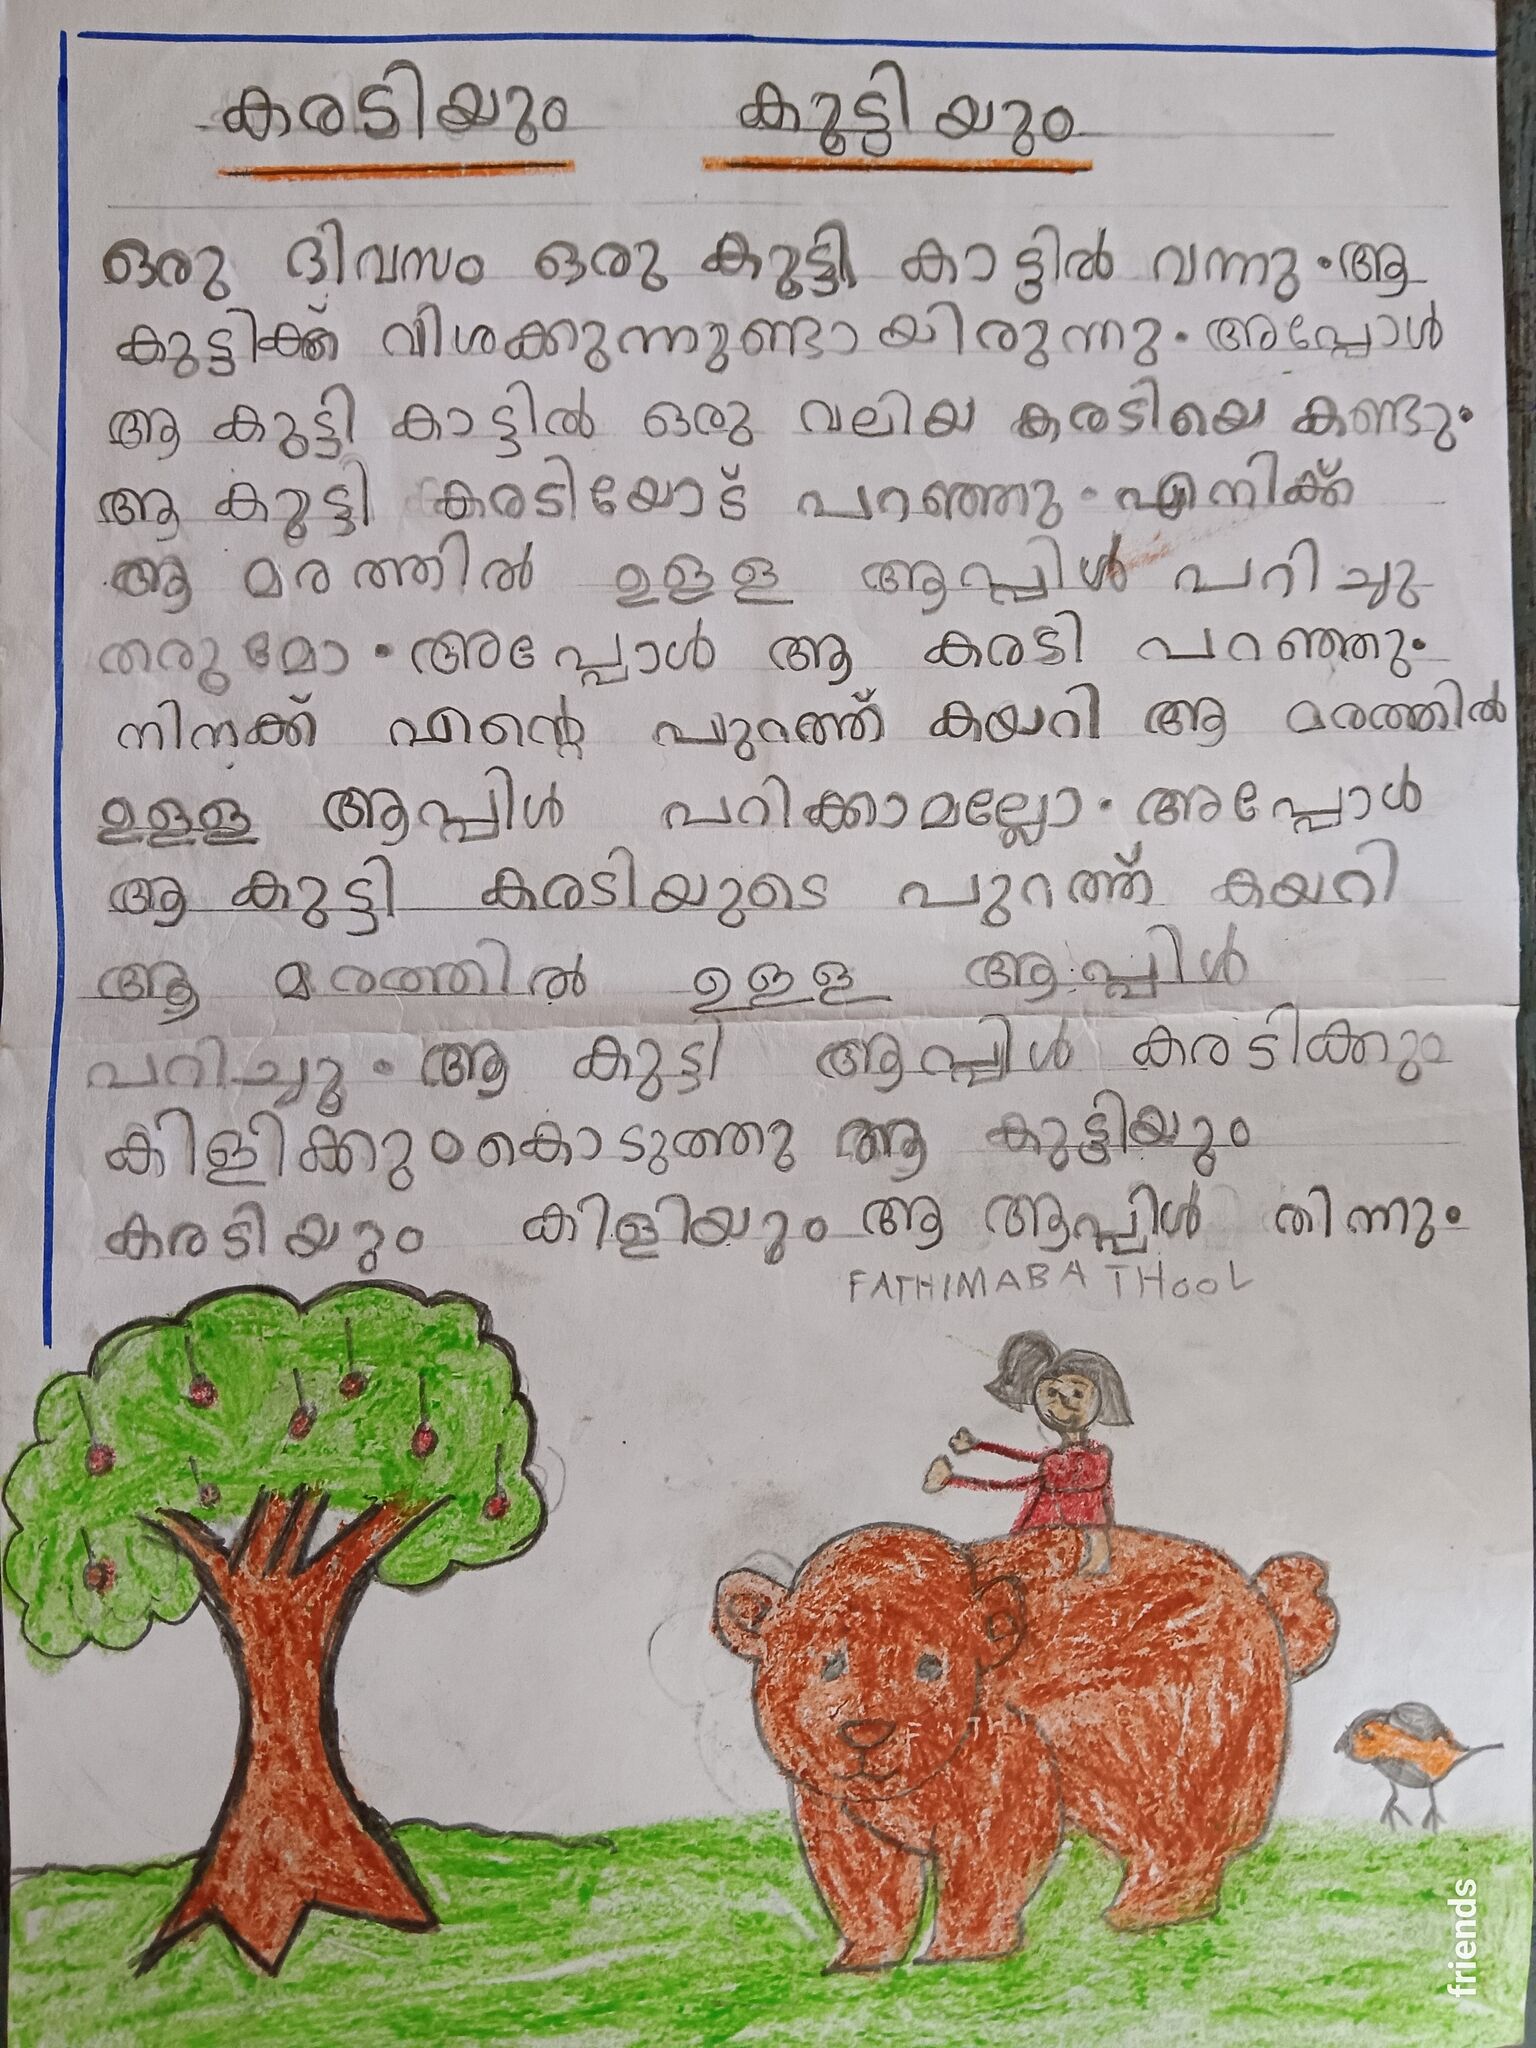 കരടിയും കുട്ടിയും
ഒരു ദിവസം ഒരു കുട്ടി കാട്ടിൽ വന്നു. ആ
കുട്ടിക്ക് വിശക്കുന്നുണ്ടായിരുന്നു. അപ്പോൾ
ആ കുട്ടി കാട്ടിൽ ഒരു വലിയ കരടിയെ കണ്ടു.
ആ കുട്ടി കരടിയോട് പറഞ്ഞു. എനിക്ക്
ആ മരത്തിൽ ഉള്ള ആപ്പിൾ പറിച്ചു
തരുമോ. അപ്പോൾ ആ കരടി പറഞ്ഞു.
നിനക്ക് എന്റെ പുറത്ത് കയറി ആ മരത്തിൽ
ഉള്ള ആപ്പിൾ പറിക്കാമല്ലോ. അപ്പോൾ
ആ കുട്ടി കരടിയുടെ പുറത്ത് കയറി
ആ മരത്തിൽ ഉള്ള ആപ്പിൾ
പറിച്ചു. ആ കുട്ടി ആപ്പിൾ കരടിക്കും
കിളിക്കും കൊടുത്തു ആ കുട്ടിയും
കരടിയും കിളിയും ആ ആപ്പിൾ തിന്നു.
FATHIMABATHOOL
friends